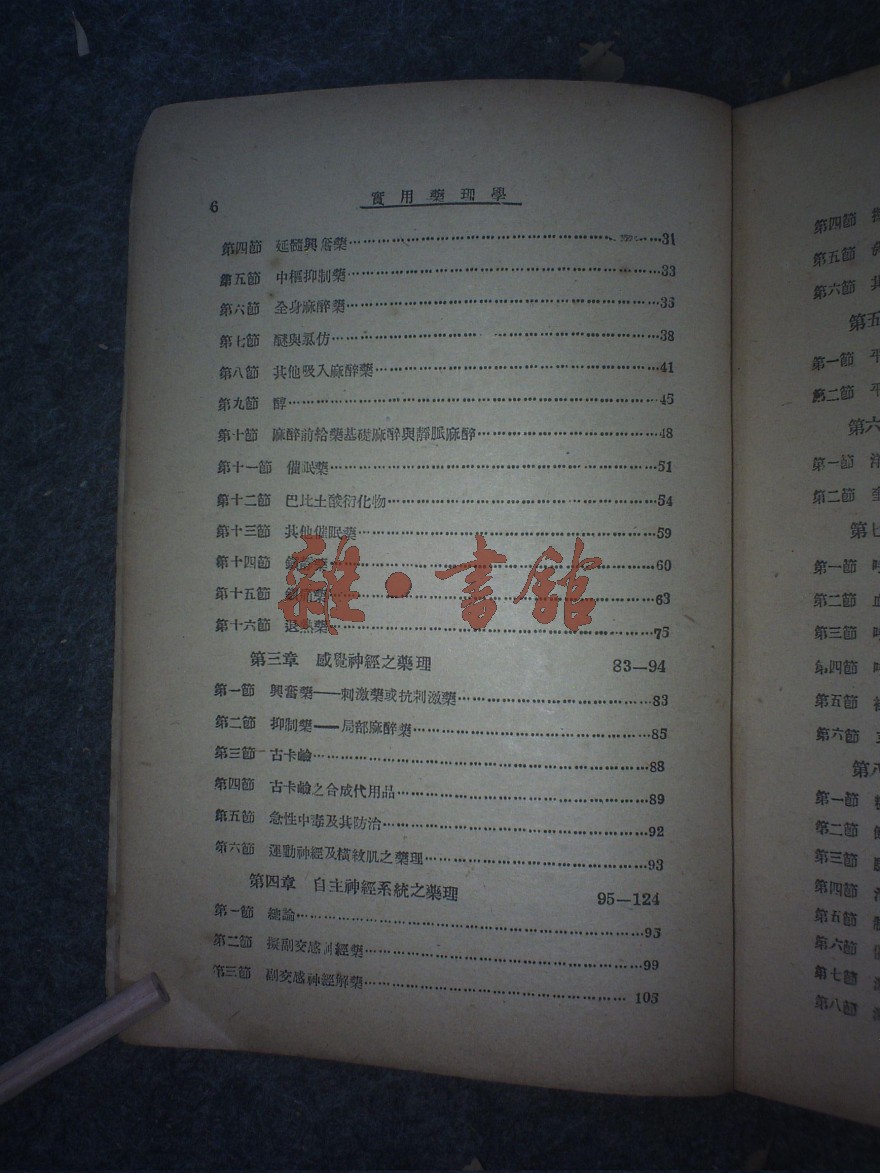 6
實用藥理學
第四節 延髓興奮藥 31
第五節 中樞抑制藥 33
第六節 全身麻醉藥 35
第七節 醚與氯仿 38
第八節 其他吸入麻醉藥 41
第九節 醇 45
第十節 麻醉前給藥基礎麻醉與靜脈麻醉 48
第十一節 催眠藥 51
第十二節 巴比土酸衍化物 54
第十三節 其他催眠藥 59
第十四節 藥 60
第十五節 藥 63
第十六節 退熱藥 75
第三章 感覺神經之藥理 83—94
第一節 興奮藥——刺激藥或抗刺激藥 83
第二節 抑制藥——局部麻醉藥 85
第三節 古卡鹼 88
第四節 古卡鹼之合成代用品 89
第五節 急性中毒及其防治 92
第六節 運動神經及橫紋肌之藥理 93
第四章 自主神經系統之藥理 95—124
第一節 總論 95
第二節 擬副交感神經藥 99
第三節 副交感神經解藥 105
雜·書館
第四節
第五節
第六節
第五
第一節 平
第二節 平
第六
第一節
第二節
第七
第一節
第二節 血
第三節
第四節
第五節
第六節
第八
第一節
第二節
第三節
第四節
第五節
第六節
第七節
第八節